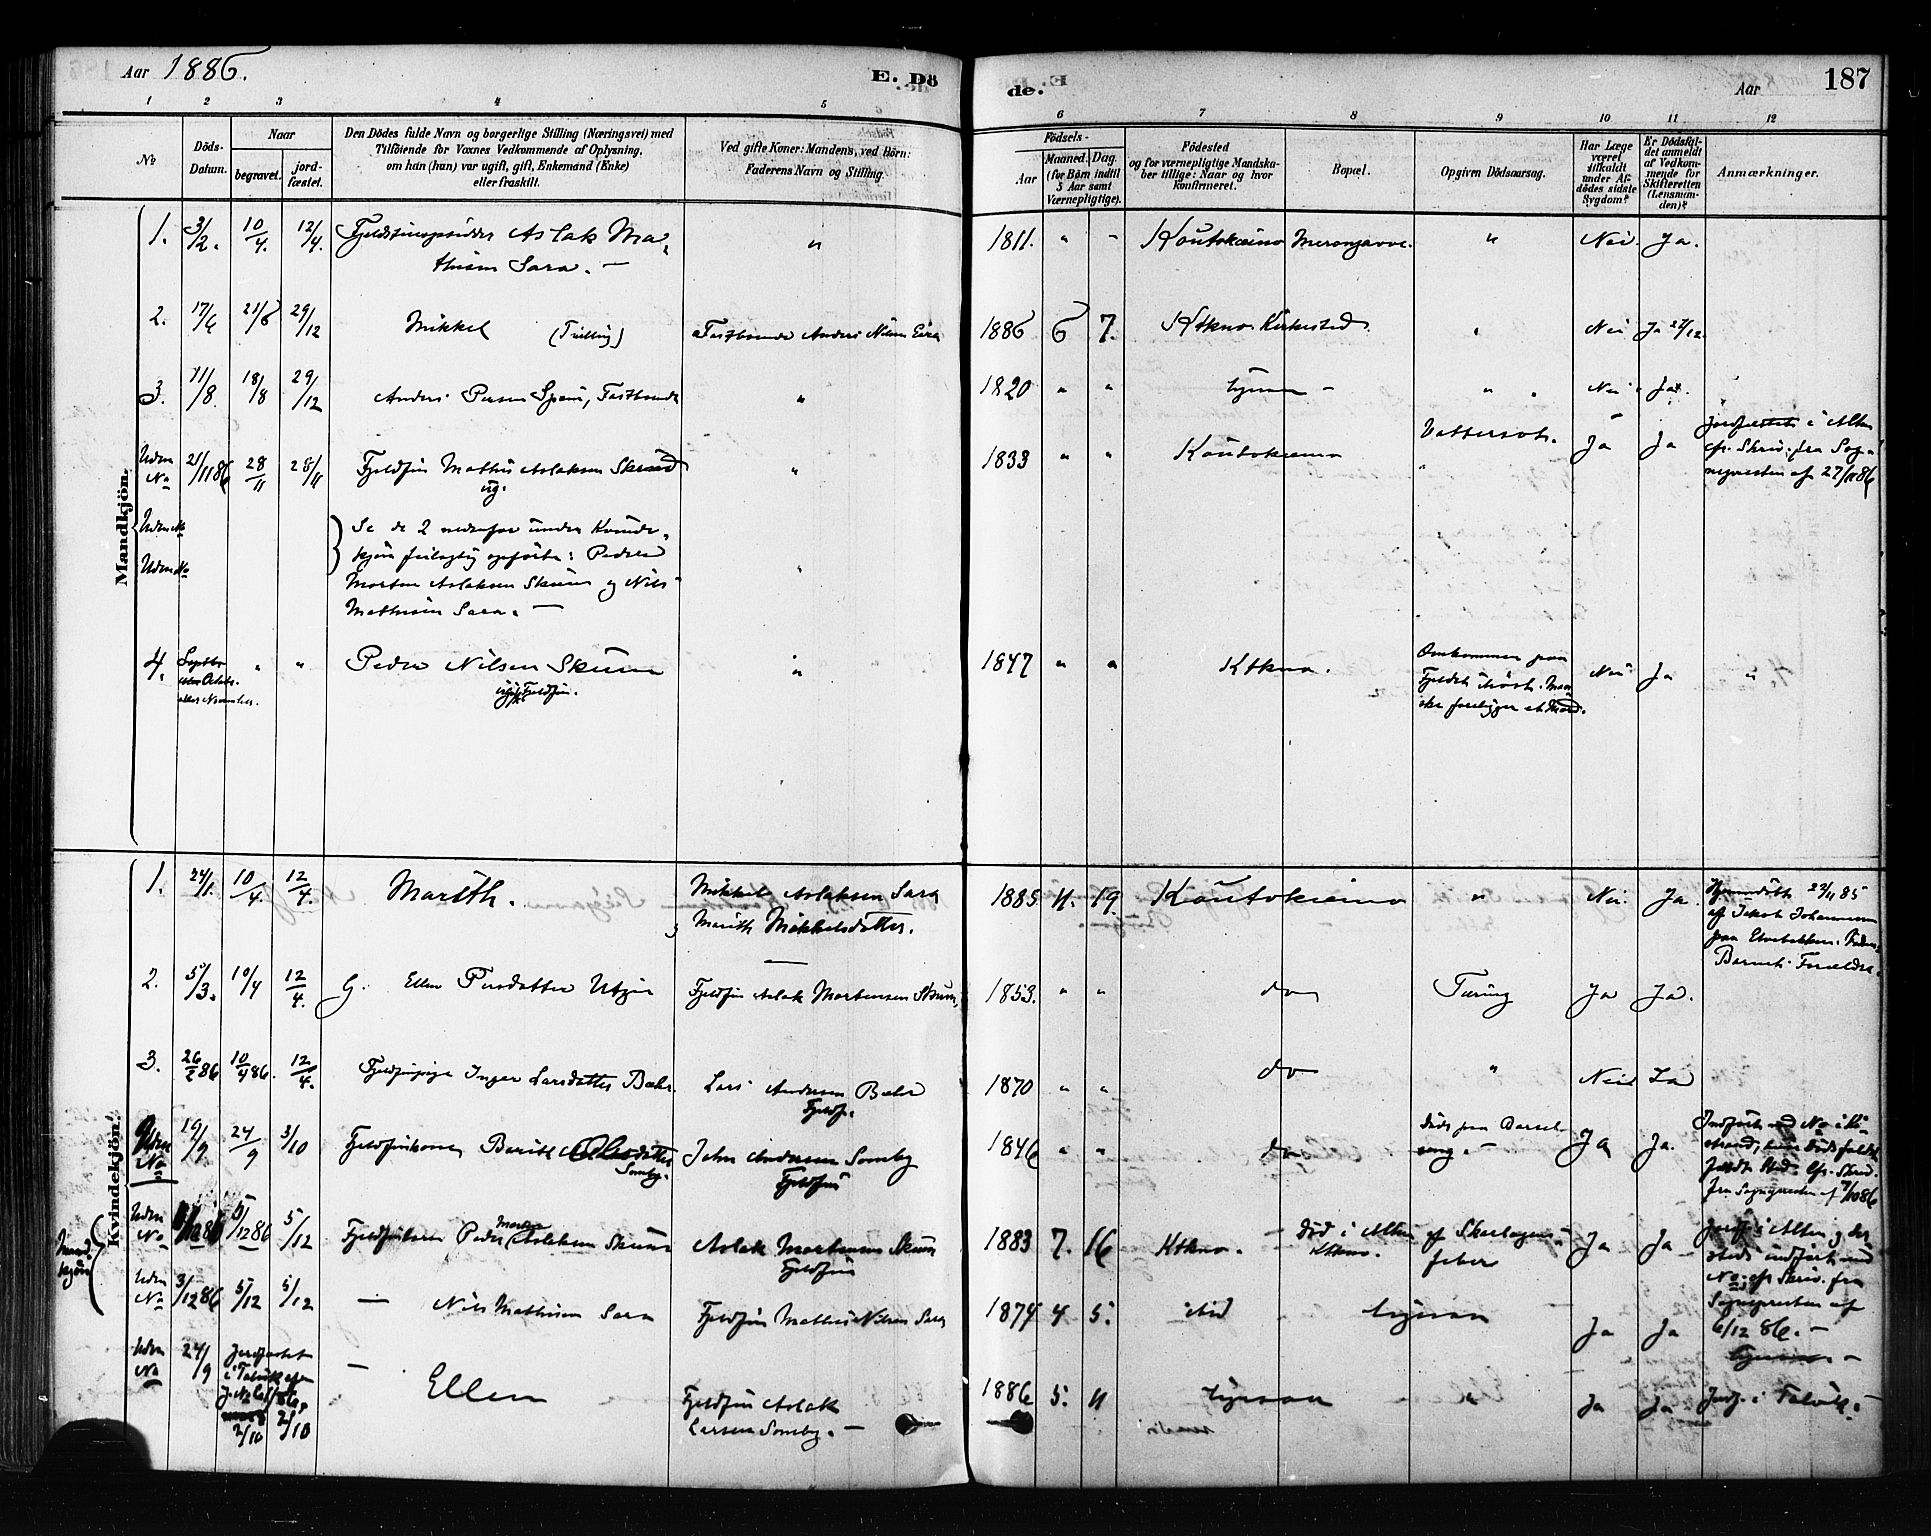 Aar 1886.
E. Döde.
Aar
187
1 2 3 4 5 6 7 8 9 10 11 12
No
Döds-Datum.
Naar
begravet.
jord-fæstet.
Den Dödes fulde Navn og borgerlige Stilling (Næringsvei) med
Tilföiende for Voxnes Vedkommende af Oplysning,
om han (hun) var ugift, gift, Enkemand (Enke)
eller fraskilt.
Ved gifte Koner: Mandens, ved Börn:
Faderens Navn og Stilling.
Födsels-
Aar
Maaned. Dag.
(for Börn indtil
5 Aar samt
Værnepligtige).
Födested
og for værnepligtige Mandska-
ber tillige: Naar og hvor
konfirmeret.
Bopæl.
Opgiven Dödsaarsag.
Har Læge
været
tilkaldt
under Af-
dödes sidste
Sygdom?
Er Dödsfal-
det anmeldt
af Vedkom-
mende for
Skifteretten
(Lensman-
den)?
Anmærkninger.
Mandkjön.
1. 3/2. 10/4. 12/4. Aslak Ma-
thisen Sara. — " 1811. " - Koutokeino " Nei. Ja.
2. 17/6 21/6 29/12 Mikkel (Tvilling) Fastboende Anders Nilsen Eira 1886 6 7. Ktkno. Kirkested. " Nei Ja 27/12.
3. 11/8. 18/8 29/12 Anders Persen Spein, Fastboende " 1820 " " Lyngen - " Nei Ja.
Uden No 21/11 86 28/11 28/11 Fjeldfin Mathis Aslaksen Skum
ug. " 1833 " " Koutokeino Vattersot. Ja Ja
jordfæstet i Alten
cfr. Skriv. fra Sog-
nepresten af 27/11 86
Uden No
Uden No
Se de 2 nedenfor under Kvinde-
kjön feilagtig opförte: Peder
Morten Aslaksen Skum og Nils
Mathisen Sara. —
4. Septbr
eller Octbr.
eller November.
" " Peder Nilsen Skum
Fjeldfin. " 1847 " " Ktkno.
Omkommen paa
Fjeldet ihöst. Maa-
ske foreligger et Mord. Nei Ja "
Kvindekjön.
1. 24/1. 10/4. 12/4. Marith. Mikkel Aslaksen Sara
og Marith Mikkelsdatter. 1885 11. 19. Koutokeino " Nei. Ja.
Hjemmedöbt 23/11 85
af Jakob Johannesen
paa Elvebakken.
Barnets Forældre.
2. 5/3. 10/4 12/4. G. Ellen Persdatter Utsi Fjeldfin Aslak Mortensen Skum. 1853. " " do Tæring Ja Ja.
3. 26/2 86 10/4 86. 12/4. Fjeldfinpige Inger Larsdatter Bæhr Lars Andersen Bæhr
Fjeldf. 1870 " " do " Nei Ja
Uden No 19/9 24/9 3/10 Fjeldfinkone Berith Olesdatter
Somby. John Andersen Somby
Fjeldfin 1846 " " do
Döde paa Barsel-
seng. — Ja Ja.
Indfört med No i Ki-
strand, hvor Dödsfaldet
fandt Sted. Cfr. Skriv.
fra Sognepresten af 7/10 86
Mand-
kjön
Uden No 5/12 86 5/12 Fjeldfinbarn Peder Morten Aslaksen Skum Aslak Mortensen Skum
Fjeldfin 1883 7. 16 Ktkno. Död i Alten
Ktkno. af Skarlagens-
feber Ja Ja
Jordf. i Alten og der-
steds indfört med
No. cfr Skriv. fra
Sognepresten af
6/12 86. —
Uden No 3/12 86 5/12 5/12 — Nils Mathisen Sara Fjeldfin Mathis Nilsen Sara 1874 4 5. ibid Ja Ja
Uden No 24/9 Jordfæstet
i Talvik
2/10 2/10
— Ellen Fjeldfin Aslak
Larsen Somby. — 1886 5. 11 " Ja Ja Jordf. i Talvik. —